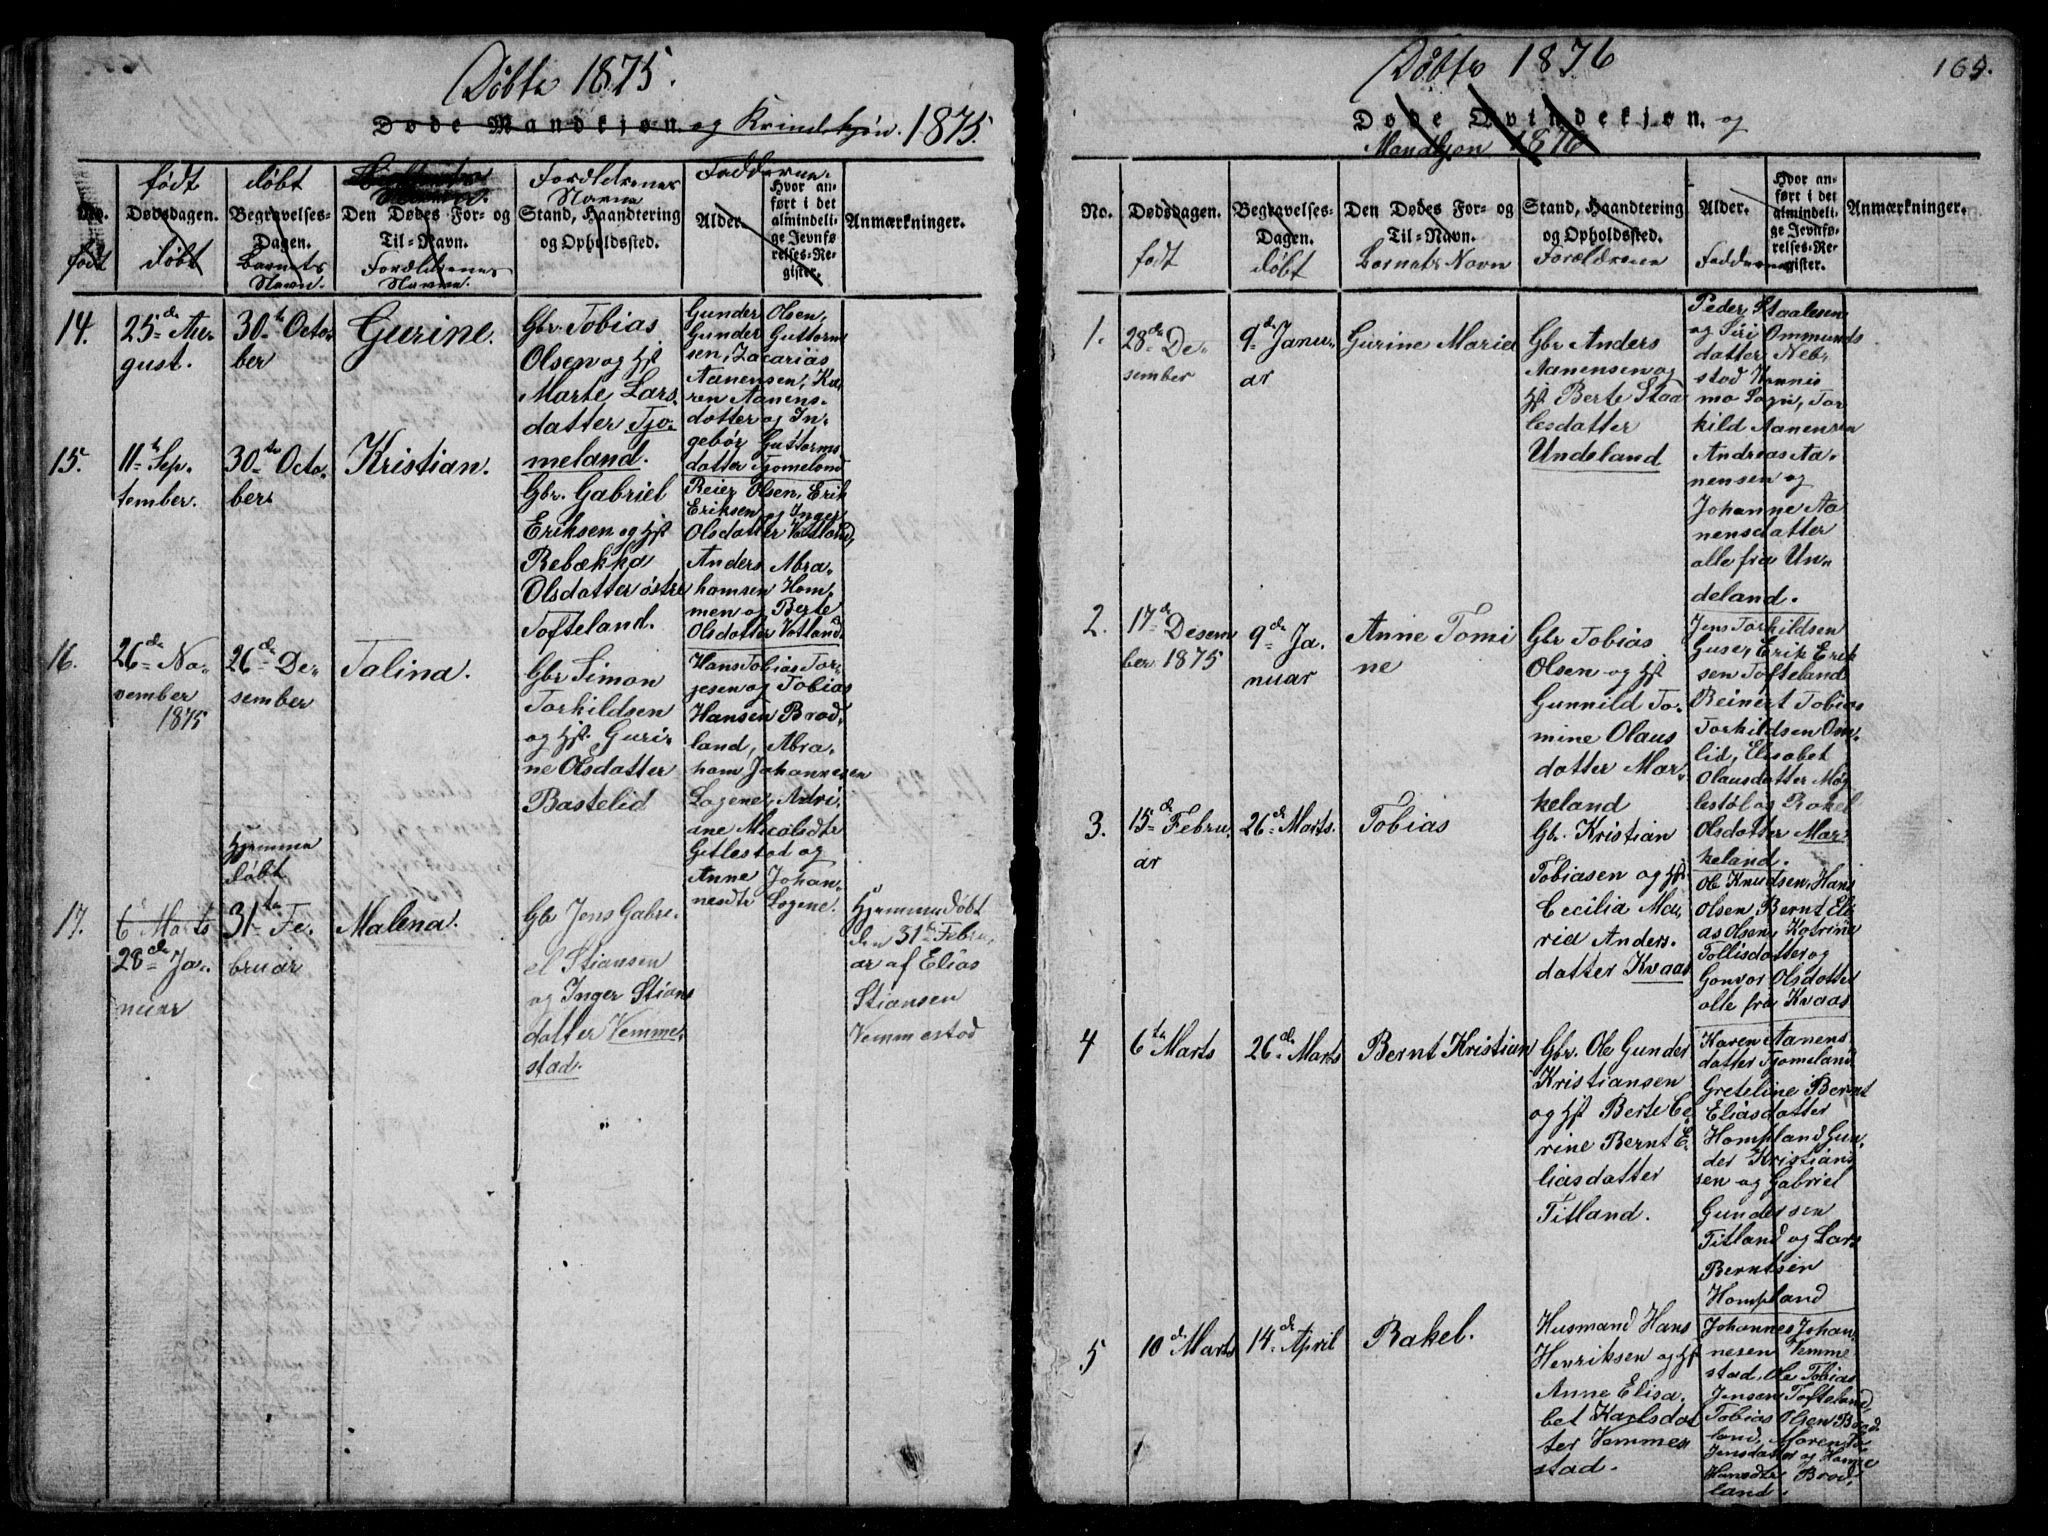 Döbte 1875.
Døde Mandkjøn. og Kvindekjøn. 1875.
født
døbt
Forældrenes
Navne
Fadderne
No.
Dødsdagen.
Begravelses-
Dagen.
Den Dødes For- og
Til-Navn.
Stand, Haandtering
og Opholdssted.
Alder.
Hvor an-
ført i det
almindeli-
ge Jevnfø-
relses-Re-
gister.
Anmærkninger.
født
døbt
Barnets
Navn.
Forældrenes
Navne.
14.
25de Au-
gust.
30te Octo-
ber
Gurine.
Gbr. Tobias
Olsen og Hst
Marte Lars-
datter Tjo-
meland.
Gunder Olsen,
Gunder Guttorm
sen, Zacarias
Aanensen, Ka-
ren Aanens-
datter og In-
gebør Guttorms
datter Tjomeland
15.
11te Sep-
tember.
30te Octo-
ber
Kristian.
Gbr. Gabriel
Eriksen og Hst
Rebækka
Olsdatter østre
Tofteland.
Reier Olsen, Erik
Eriksen og Inger
Olsdatter Vatland,
Anders Abra-
hamsen Hom-
men og Berte
Olsdatter Vatland
16.
26de No-
vember
1875
26de De-
sember
Talina.
Gbr Simon
Torkildsen
og Hst. Guri-
ne Olsdatter
Bastelid
Hans Tobias Tor-
jesen og Tobias
Hansen Brod-
land, Abra-
ham Johannesen
Logene, Adri-
ane Nicolsdtr
Gitlestad og
Anne Johan-
nesdtr Logene.
Hjemme
døbt
17.
6te Marts
28de Ja-
nuar
31te Fe-
bruar
Malena.
Gbr Jens Gabri-
el Stiansen
og Inger Stians
datter Vemme-
stad.
Hjemmedøbt
den 31te Febru-
ar af Elias
Stiansen
Vemmestad
Döbte 1876
165.
Døde Qvindekjøn. og
Mandkjøn 1876
No.
Dødsdagen.
født
Begravelses-
Dagen.
døbt
Den Dødes For- og
Til-Navn.
Barnets Navn
Stand, Haandtering
og Opholdssted.
Forældrene
Alder.
Fadderne
Hvor an-
ført i det
almindeli-
ge Jevnfø-
relses-Re-
gister.
Anmærkninger.
1.
28de De-
sember
9de Janu-
ar
Gurine Marie
Gbr Anders
Aanensen og
Hst Berte Staa
lesdatter
Undeland
Peder Staalesen
og Siri Ommunds
datter Neb-
stad Konnis
mo Sogn, Tor
kild Aanensen
Andreas Aa-
nensen og
Johanne Aa
nensdatter
alle fra Un-
deland.
2.
17de Desem
ber 1875
9de Ja-
nuar
Anne Tomi
ne
Gbr Tobias
Olsen og Hst
Gunnild To-
mine Olaus
datter Mar-
keland
Jens Torkildsen
Guser, Erik Erik
sen Tofteland
Reinert Tobias
Torkildsen Om-
lid, Elisabet
Olausdatter Møg
lestøl og Rakel
Olsdatter Mar-
keland.
3.
15de Febru-
ar
26de Marts.
Tobias
Gbr. Kristian
Tobiasen og Hst
Cecilia Ma-
ria Anders-
datter Kvaas
Ole Knudsen, Hans
Olsen, Bernt Eli
as Olsen, Katrine
Tollisdatter og
Gonvor Olsdatter
alle fra Kvaas.
4
6te Marts
26de Marts
Bernt Kristian
Gbr. Ole Gunder
Kristiansen
og Hst Berte Ce-
rine Bernt E-
liasdatter
Titland.
Karen Aanens
datter Tjomeland
Greteline Bernt
Eliasdatter
Hompland, Gun-
der Kristians
sen og Gabriel
Gundersen
Titland og Lars
Berntsen
Hompland
5
10de Marts
14de April
Rakel.
Husmand Hans
Henriksen og Hst
Anne Elisa-
bet Karlsdat
ter Vemme-
stad.
Johannes Johan-
nesen Vemme
stad, Ole Tobias
Jensen Tofteland,
Tobias Olsen Brod
land, Maren
Jensdatter og Hanne
Hansdtr Brod-
land.